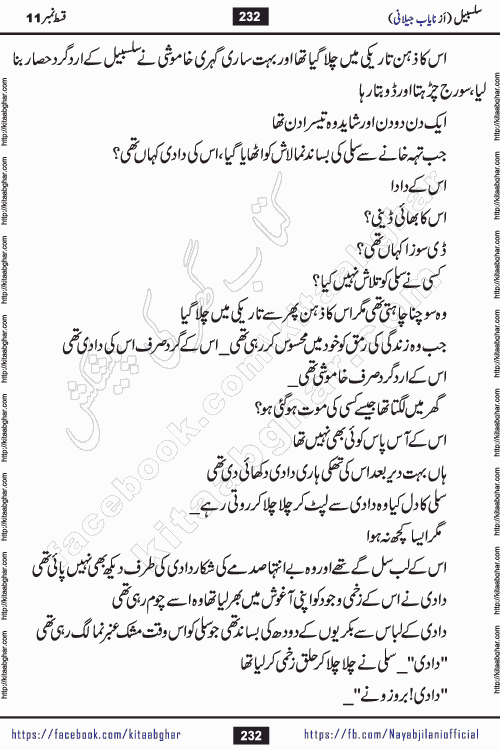 سلسبیل (از نایاب جیلانی)
232
قسط نمبر 11
اس کا ذہن تاریکی میں چلا گیا تھا اور بہت ساری گہری خاموشی نے سلسبیل کے اردگرد حصار بنا
لیا، سورج چڑھتا اور ڈوبتا رہا
ایک دن دو دن اور شاید وہ تیسرا دن تھا
جب تہہ خانے سے سلی کی بساند نما لاش کو اٹھایا گیا، اس کی دادی کہاں تھی؟
اس کے دادا
اس کا بھائی ڈینی؟
ڈی سوزا کہاں تھی؟
کسی نے سلی کو تلاش نہیں کیا؟
وہ سوچنا چاہتی تھی مگر اس کا ذہن پھر سے تاریکی میں چلا گیا
جب وہ زندگی کی رمق کو خود میں محسوس کر رہی تھی_ اس کے گرد صرف اس کی دادی تھی
اس کے اردگرد صرف خاموشی تھی_
گھر میں لگتا تھا جیسے کسی کی موت ہو گئی ہو؟
اس کے آس پاس کوئی بھی نہیں تھا
ہاں بہت دیر بعد اس کی تھکی ہاری دادی دکھائی دی تھی
سلی کا دل کیا وہ دادی سے لپٹ کر چلا چلا کر روتی رہے_
مگر ایسا کچھ نہ ہوا
اس کے لب سل گئے تھے اور وہ بے انتہا صدمے کی شکار دادی کی طرف دیکھ بھی نہیں پائی تھی
دادی نے اس کے زخمی وجود کو اپنی آغوش میں بھر لیا تھا وہ اسے چوم رہی تھی
دادی کے لباس سے بکریوں کے دودھ کی بساند تھی جو سلی کو اس وقت مشک عنبر نما لگ رہی تھی
"دادی"_ سلی نے چلا چلا کر حلق زخمی کر لیا تھا
"دادی! بروزو نے"_
کتاب گھر کی پیشکش
kitaabghar.com
facebook.com/kitaabghar
http://kitaabghar.com
https://facebook.com/kitaabghar
232
https://fb.com/Nayabjilaniofficial